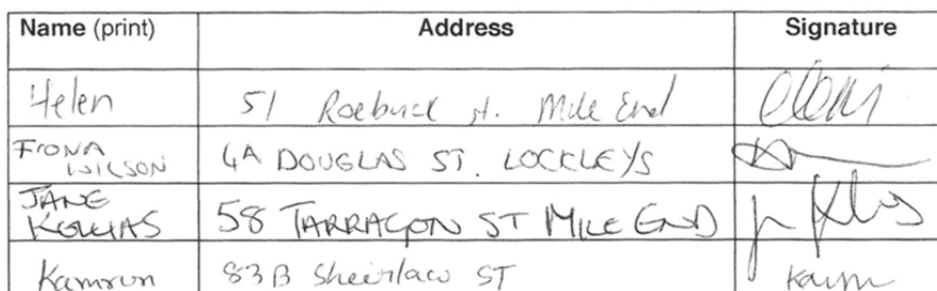 Name (print) Address Signature
Helen 51 Roebuck St. Mile End
FIONA WILSON 4A DOUGLAS ST. LOCKLEYS
JANE KOLLIAS 58 TARRAGON ST MILE END
Kamrun 83B Sheirlaw ST